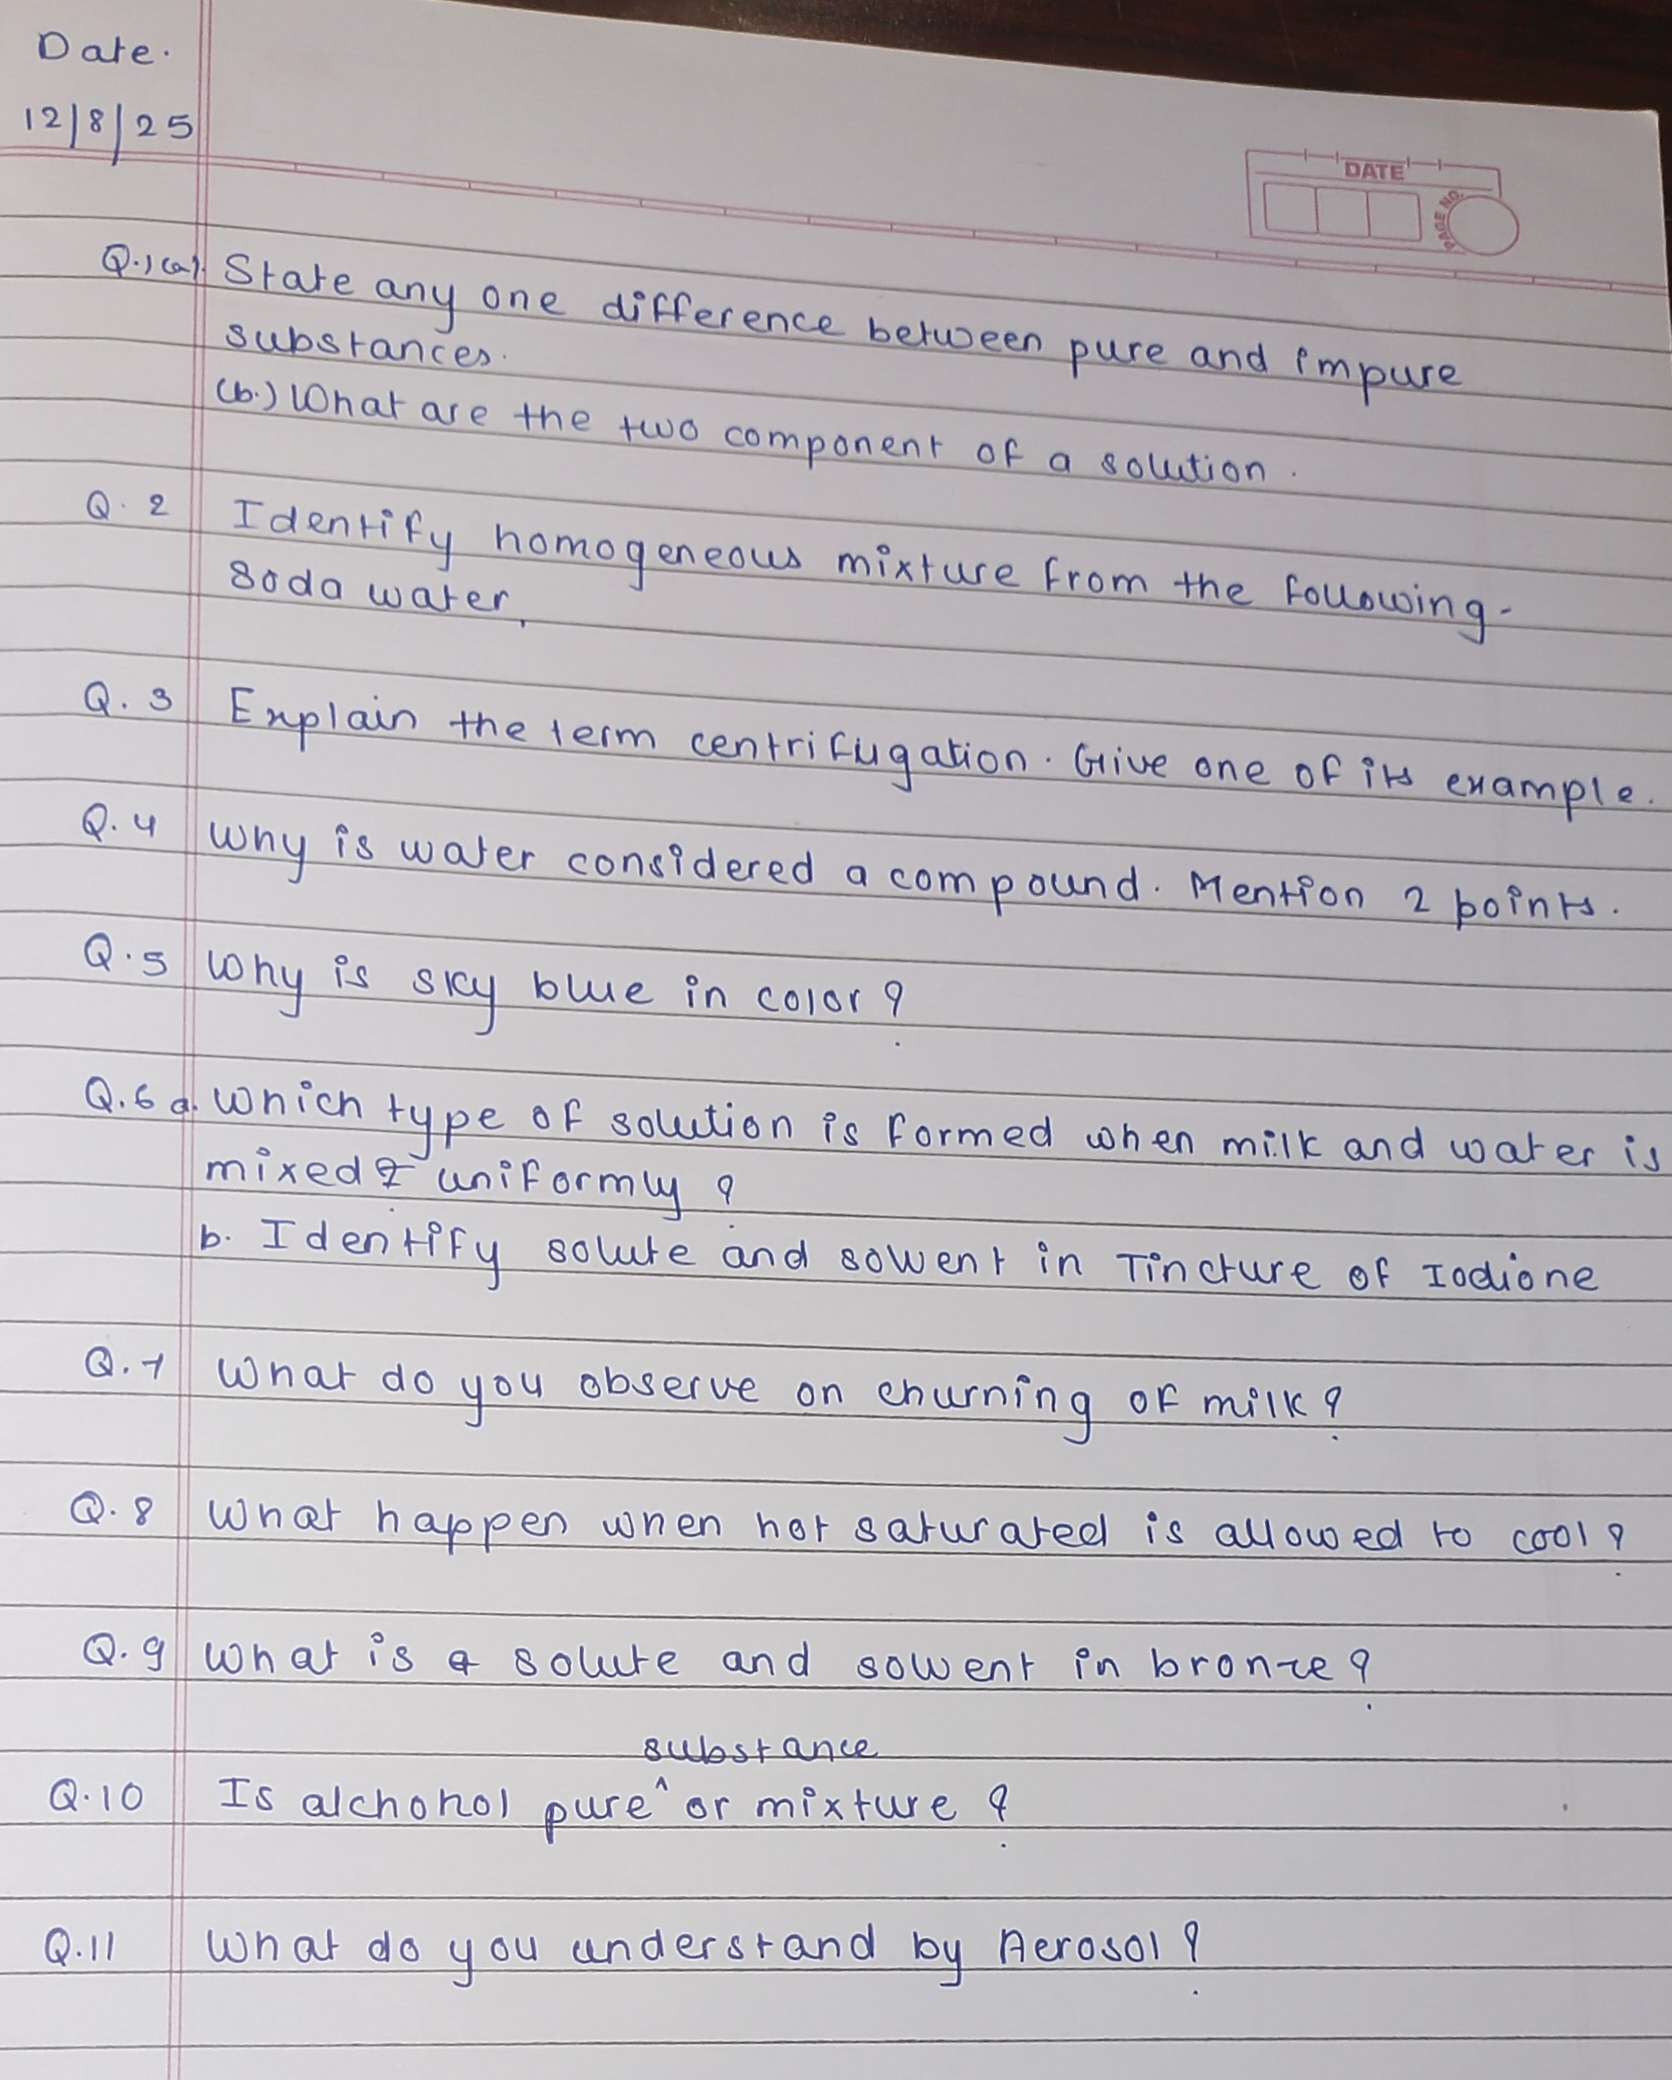 Date.
12/8/25
DATE
PAGE NO.
Q.1(a). State any one difference between pure and impure
substances.
(b.) What are the two component of a solution.
Q.2 Identify homogeneous mixture from the following-
Soda water,
Q.3 Explain the term centrifugation. Give one of its example.
Q.4 Why is water considered a compound. Mention 2 points.
Q.5 Why is sky blue in color?
Q.6 a. Which type of solution is formed when milk and water is
mixed uniformly?
b. Identify solute and solvent in Tincture of Iodione
Q.7 What do you observe on churning of milk?
Q.8 What happen when hot saturated is allowed to cool?
Q.9 What is solute and solvent in bronze?
substance
Q.10 Is alchohol pure ^ or mixture?
Q.11 What do you understand by Aerosol?